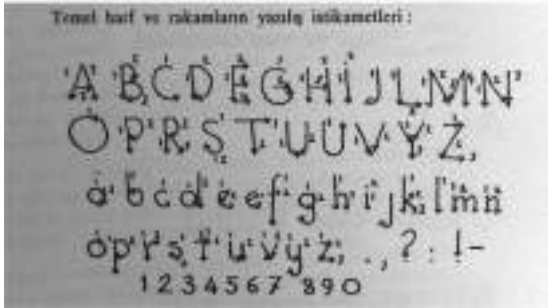 Temel harf ve rakamların yazılış istikametleri :
A B C D E G H İ J L M N
O P R S T U U V Y Z ,
a b c d e e f g h i j k l m n
o p r s t u v y z ; . , ? : ! -
1 2 3 4 5 6 7 8 9 0